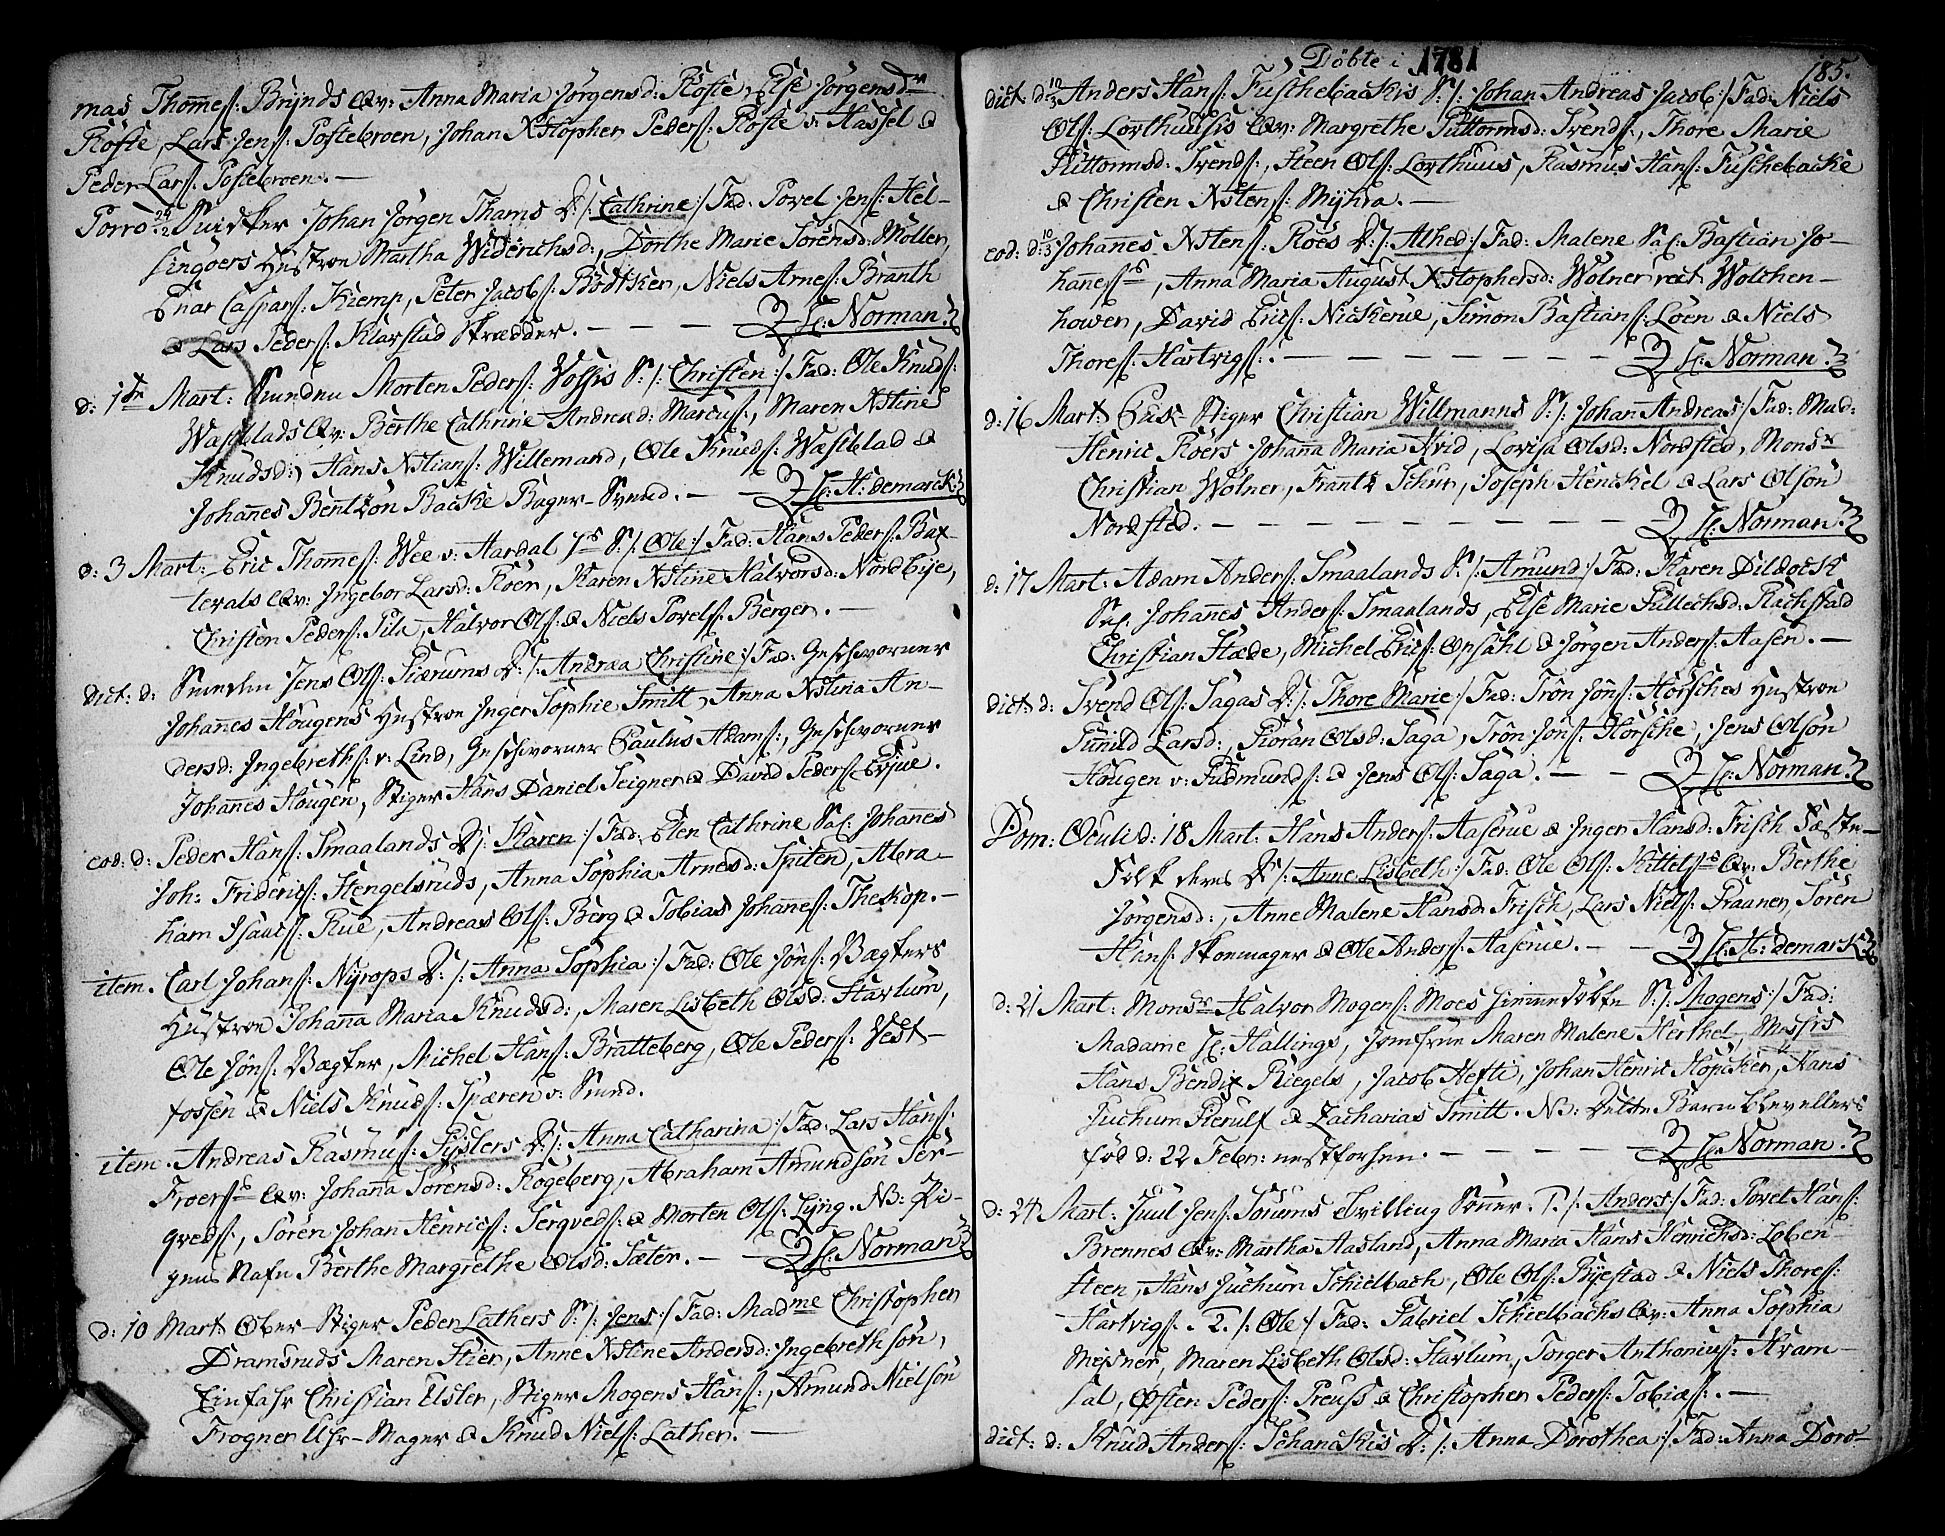 mas Thomes: Brynds Qv: Anna Maria Jörgensd: Röste, Else Jörgensdr
Röste, Lars Jens: Postebroen, Johan Xstopher Peders: Röste v: Hassel &
Peder Lars: Postebroen. —
Porro 24/2 Snidker Johan Jörgen Thams D: /: Cathrine :/ Fad: Povel Jens: Hel-
singöers Hustroe Martha Widerichsd:, Dorthe Marie Sörensd: Möller,
Enar Caspars: Kiemp, Peter Jacobs: Bödtker, Niels Arnes: Branth
& Lars Peders: Klavstad Skrædder. — — — H: Norman.
d: 1te Mart: Smeden Morten Peders: Vossis S: /: Christen :/ Fad: Ole Knuds:
Wæstblads Qv: Berthe Cathrine Andreæd: Marcus:, Maren Xstine
Knudsd:, Hans Xstians: Willemand, Ole Knuds: Wæstblad &
Johannes Bentzön Backe Bager-Svend. — — H: H: demarck.
d: 3 Mart: Eric Thomes: Wee v: Aardal 7s S: /: Ole :/ Fad: Hans Peders: Bax-
tevals Qv: Ingebor Larsd: Röen, Karen Xstine Halvorsd: Nordbye,
Christen Peders: Pila, Halvor Ols: & Niels Povels: Berger. —
dict: d: Smeden Jens Ols: Fiærums D: /: Andræa Christine :/ Fad: Geschworner
Johannes Hougens Hustroe Inger Sophie Smitt, Anna Xstina An-
dersd: Ingebreths: v: Lind, Geschworner Paulus Adams:, Geschworner
Johannes Hougen, Stiger Hans Daniel Seigner & David Peders: Evjue.
eod: d: Peder Hans: Smaalands D: /: Karen :/ Fad: Elen Cathrine Sal: Johannes
Joh: Frideric: Hengelsruds, Anna Sophia Arnesd: Spiten, Abra-
ham Isaacs: Rue, Andreas Ols: Berg & Tobias Johannes: Theskop. —
item. Carl Johans: Nyrops D: /: Anna Sophia :/ Fad: Ole Jöns: Vægters
Hustroe Johanna Maria Knudsd:, Maren Lisbeth Olsd: Havlum,
Ole Jöns: Vægter, Michel Hans: Bratteberg, Ole Peders: Vest-
fossen & Niels Knuds: Spæren v: Sund.
item. Andreas Rasmus: Gislers D: /: Anna Catharina :/ Fad: Lars Hans:
Froers Qv: Johanna Sörensd: Kogeberg, Abraham Amundsön Ser-
qveds:, Sören Johan Henrics: Serqveds: & Morten Ols: Lyng. NB: Pi-
gens Nafn Berthe Margrethe Olsd: Sæter. — H: Norman.
d: 10 Mart: Ober-Stiger Peder Lathers S: /: Jens :/ Fad: Madme Christopher
Dramsruds Maren Stien, Anne Xstine Andersd: Ingebrethsön,
Einfahr Christian Elster, Stiger Mogens Hans:, Amund Nielsön
Frogner Uhr-Mager & Knud Niels: Lather. —
Döbte i 1781 185.
dict: d: 10/3 Anders Hans: Fuschebackis S: /: Johan Andreas Jacob :/ Fad: Niels
Ols: Lorthuusis Qv: Margrethe Guttormsd: Svends:, Thore Marie
Guttormsd: Svends:, Steen Ols: Lorthuus, Rasmus Hans: Fuschebacke
& Christen Xstens: Myhra. —
eod: d: 10/3 Johannes Xstens: Roes D: /: Alhed :/ Fad: Malene Sal: Bastian Jo-
hannes:, Anna Maria August Xstophersd: Wolner rect: Wolchen-
hower, David Erics: Nickerue, Simon Bastians: Löen & Niels
Thores: Hartvigs:. — — — — — H: Norman.
d: 16 Mart: Stiger Christian Willmanns S: /: Johan Andreas :/ Fad: Mad:
Henric Röers Johanna Maria Avid, Lovisa Olsd: Nordsted, Monsr
Christian Wölner, Frantz Schur, Joseph Henckel & Lars Olsön
Nordsted. — — — — — H: Norman.
d: 17 Mart: Adam Anders: Smaalands S: /: Amund :/ Fad: Karen Dildock
Sal: Johannes Anders: Smaalands, Else Marie Gullechsd: Rachstad
Christian Stæde, Michel Erics: Opsahl & Jörgen Anders: Aasen. —
dict: d: Svend Ols: Sagas D: /: Thore Marie :/ Fad: Trön Jöns: Horsches Hustroe
Gunild Larsd:, Giöran Olsd: Saga, Trön Jöns: Hörsche, Jens Olsön
Hougen v: Gudmunds: & Jens Ols: Saga. — — H: Norman.
Dom: Oculi d: 18 Mart: Hans Anders: Aaserue & Inger Hansd: Frisch Fæste-
Folk deres D: /: Anne Lisbeth :/ Fad: Ole Ols: Kittels: Qv: Berthe
Jörgensd:, Anne Malene Hansd: Frisch, Lars Niels: Fraanes, Sören
Hans: Skoemager & Ole Anders: Aaserue. — — H: H: demarck
d: 21 Mart: Monsr Halvor Mogens: Moes hiemmedöbte S: /: Mogens :/ Fad:
Madame H: Hallings, Jomfrue Maren Malene Herthel, Messrs
Hans Bendix Riegels, Jacob Hefti, Johan Henric Höpcker, Hans
Juchum Gierulf & Zacharias Smitt. NB: Dette Barn blev ellers
föd d: 22 Febr: nestforhen. — — — — H: Norman.
d: 24 Mart: Juul Jens: Sörums Tvilling Sönner. 1. /: Anders :/ Fad: Povel Hans:
Brennes Qv: Martha Aasland, Anna Maria Hans Henrichsd: Loben-
steen, Hans Juchum Schielbach, Ole Ols: Byestad & Niels Thores:
Hartvigs: 2. /: Ole :/ Fad: Gabriel Schielbachs Qv: Anna Sophia
Meisner, Maren Lisbeth Olsd: Havlum, Torger Anthonius: Hvam-
sal, Østen Peders: Preuss & Christopher Peders: Tobias:. —
dict: d: Knud Anders: Jehanckis D: /: Anna Dorothea :/ Fad: Anna Doro-